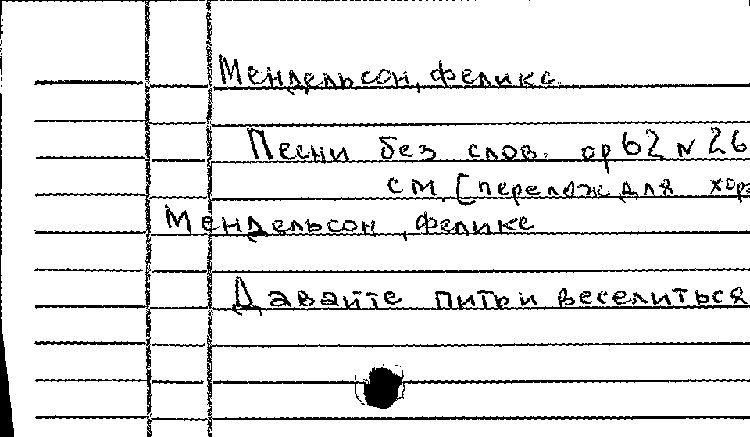 Мендельсон, Феликс
Песни без слов. op 62 N 26
см. [перелож для хора
Мендельсон, Феликс
Давайте пить и веселиться